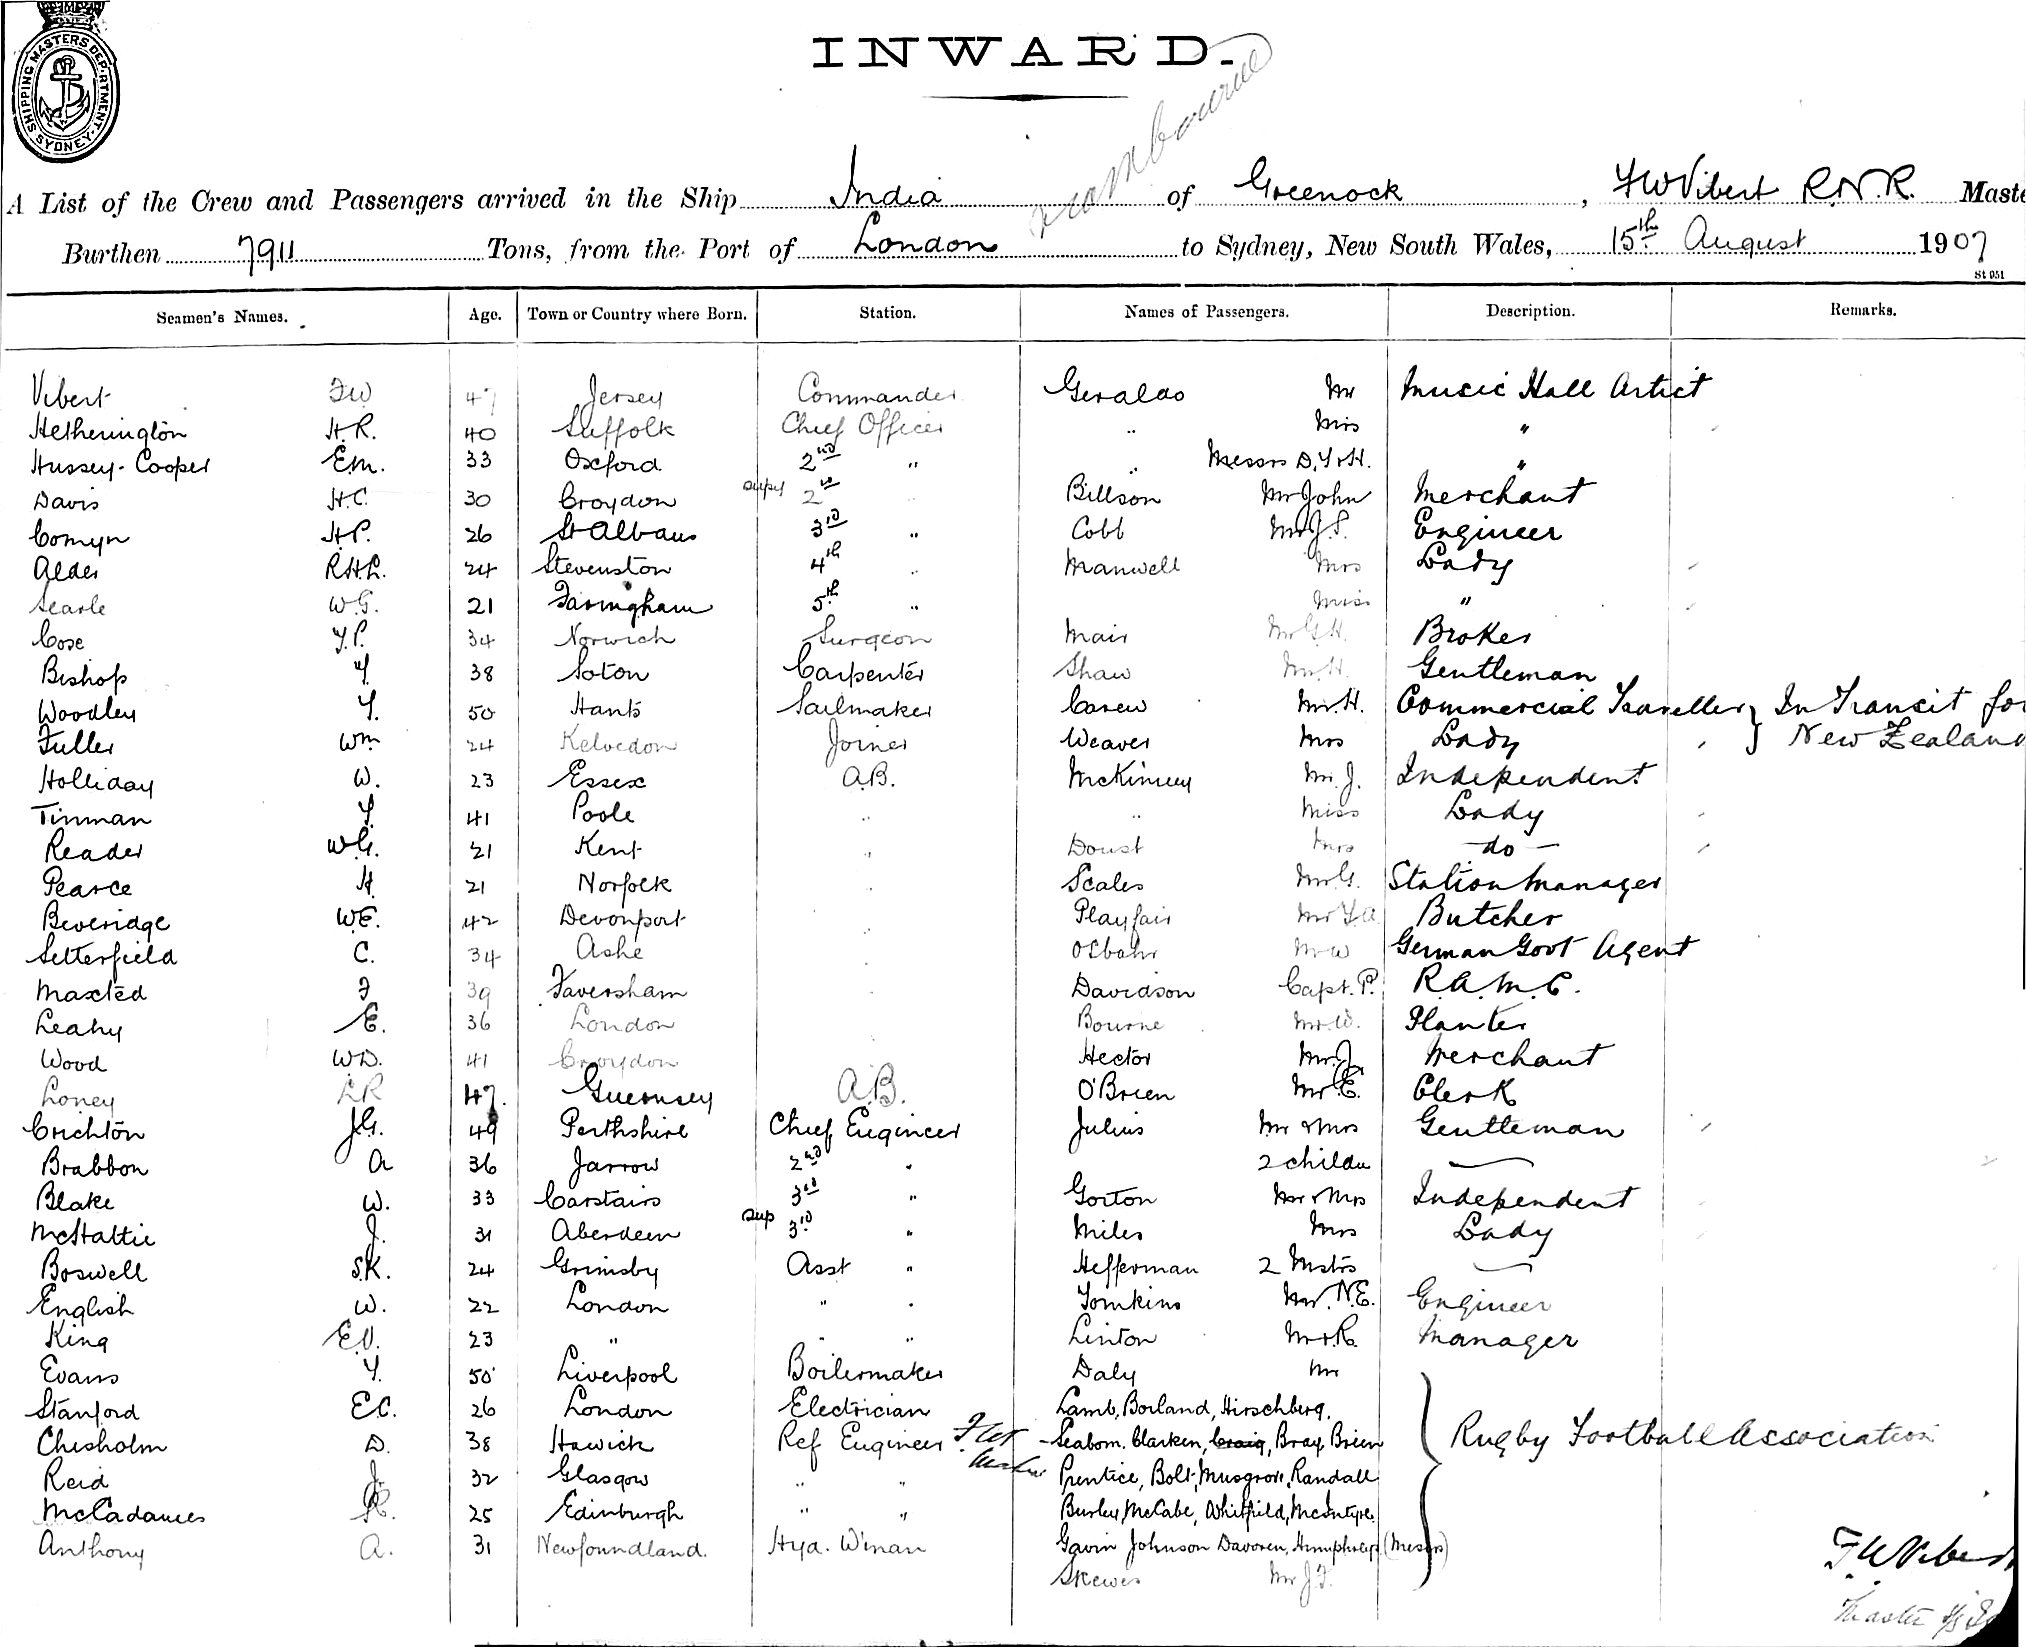 SHIPPING MASTERS DEPARTMENT. SYDNEY.
INWARD.
A List of the Crew and Passengers arrived in the Ship India of Greenock, F W Vibert R.N.R. Maste
Burthen 7911 Tons, from the Port of London to Sydney, New South Wales, 15th August 1907
St 951
Seamen's Names. Age. Town or Country where Born. Station. Names of Passengers. Description. Remarks.
Vibert FW 47 Jersey Commander Geraldo Mr Music Hall Artist
Hetherington H.R. 40 Suffolk Chief Officer " Mrs "
Hussey-Cooper E.M. 33 Oxford 2nd " " Messrs D, Y & H. "
Davis H.C. 30 Croydon supy 2nd Billson Mr John Merchant
Comyn H.P. 26 St Albans 3rd " Cobb Mr J.S. Engineer
Alder R.H.L. 24 Stevenston 4th " Manwell Mrs Lady
Searle W.G. 21 Farningham 5th " Miss "
Cose Y.P. 34 Norwich Surgeon Mair Mr G.H. Broker
Bishop Y 38 Soton Carpenter Shaw Mr H. Gentleman
Woodley Y. 50 Hants Sailmaker Carew Mr H. Commercial Traveller } In Transit for
Fuller Wm 24 Kelvedon Joiner Weaver Mrs Lady } New Zealand
Holliday W. 23 Essex A.B. McKinney Mr J. Independent
Tinman Y. 41 Poole " " Miss Lady
Reader W.G. 21 Kent " Doust Mrs - do -
Pearce H. 21 Norfolk " Scales Mr G. Station Manager
Beveridge W.E. 42 Devonport " Playfair Mr Y A Butcher
Setterfield C. 34 Ashe " Osbahr Mr W German Govt Agent
Maxted F 39 Faversham " Davidson Capt. P. R.A.M.C.
Leahy E. 36 London " Bourne Mr W. Planter
Wood W.D. 41 Croydon Hector Mr J. Merchant
Loney L R 47. Guernsey A.B. O'Brien Mr E. Clerk
Crichton J.G. 49 Perthshire Chief Engineer Julius Mr & Mrs Gentleman
Brabbon A 36 Jarrow 2nd " 2 childn
Blake W. 33 Carstairs 3rd " Gorton Mr & Mrs Independent
McHattie J. 31 Aberdeen sup 3rd " Miles Mrs Lady
Boswell S.K. 24 Grimsby Asst " Hefferman 2 Mstrs
English W. 22 London " " Tomkins Mr. N.E. Engineer
King E.V. 23 " " " Linton Mr R. Manager
Evans Y. 50 Liverpool Boilermaker Daly Mr
Stanford E.C. 26 London Electrician Lamb, Borland, Hirschberg,
Chisholm D. 38 Hawick Ref Engineer Seabom. Clarken, Craig, Bray, Brien } Rugby Football Association
Reid J. 32 Glasgow " " Prentice, Bolt, Musgrove, Randall
McCadames R. 25 Edinburgh " " Burley, McCabe, Whitfield, McIntyre
Anthony A. 31 Newfoundland. Hyd. Winan Gavin Johnson Davoren, Humphreys (Messrs)
Skewes Mr J.F.
F.W Vibert
Master